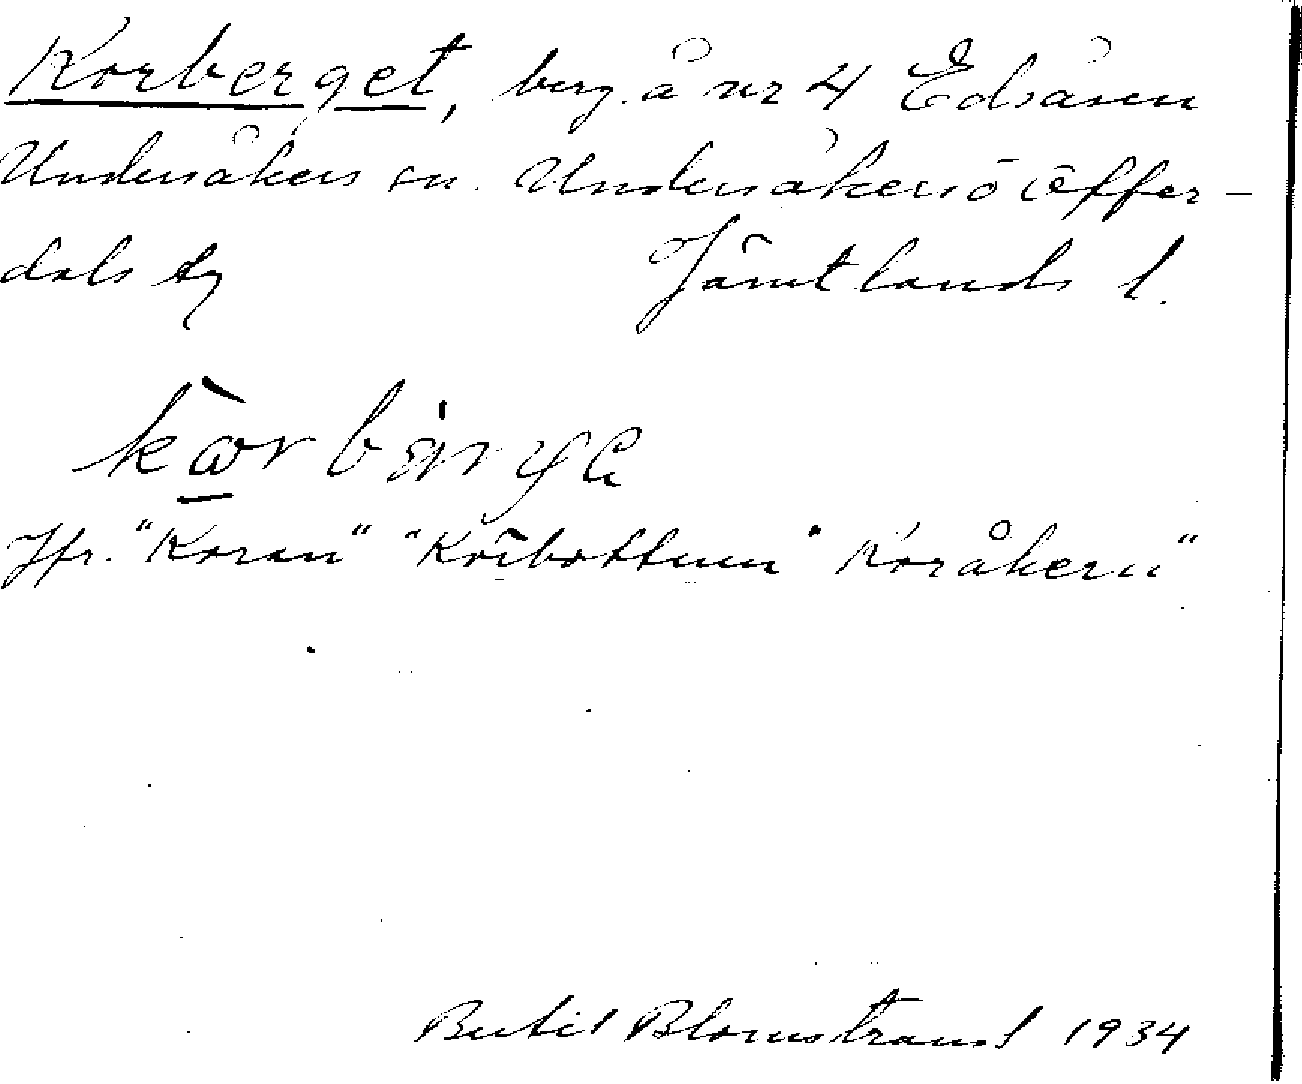 Korberget, berg å nr 4 Edsåsen
Undersåkers sn. Undersåkers o Offer-
dals tg Jämtlands l.
Jfr. "Koran" "Korbottnen" Koråkern"
Bertil Blomstrand 1934